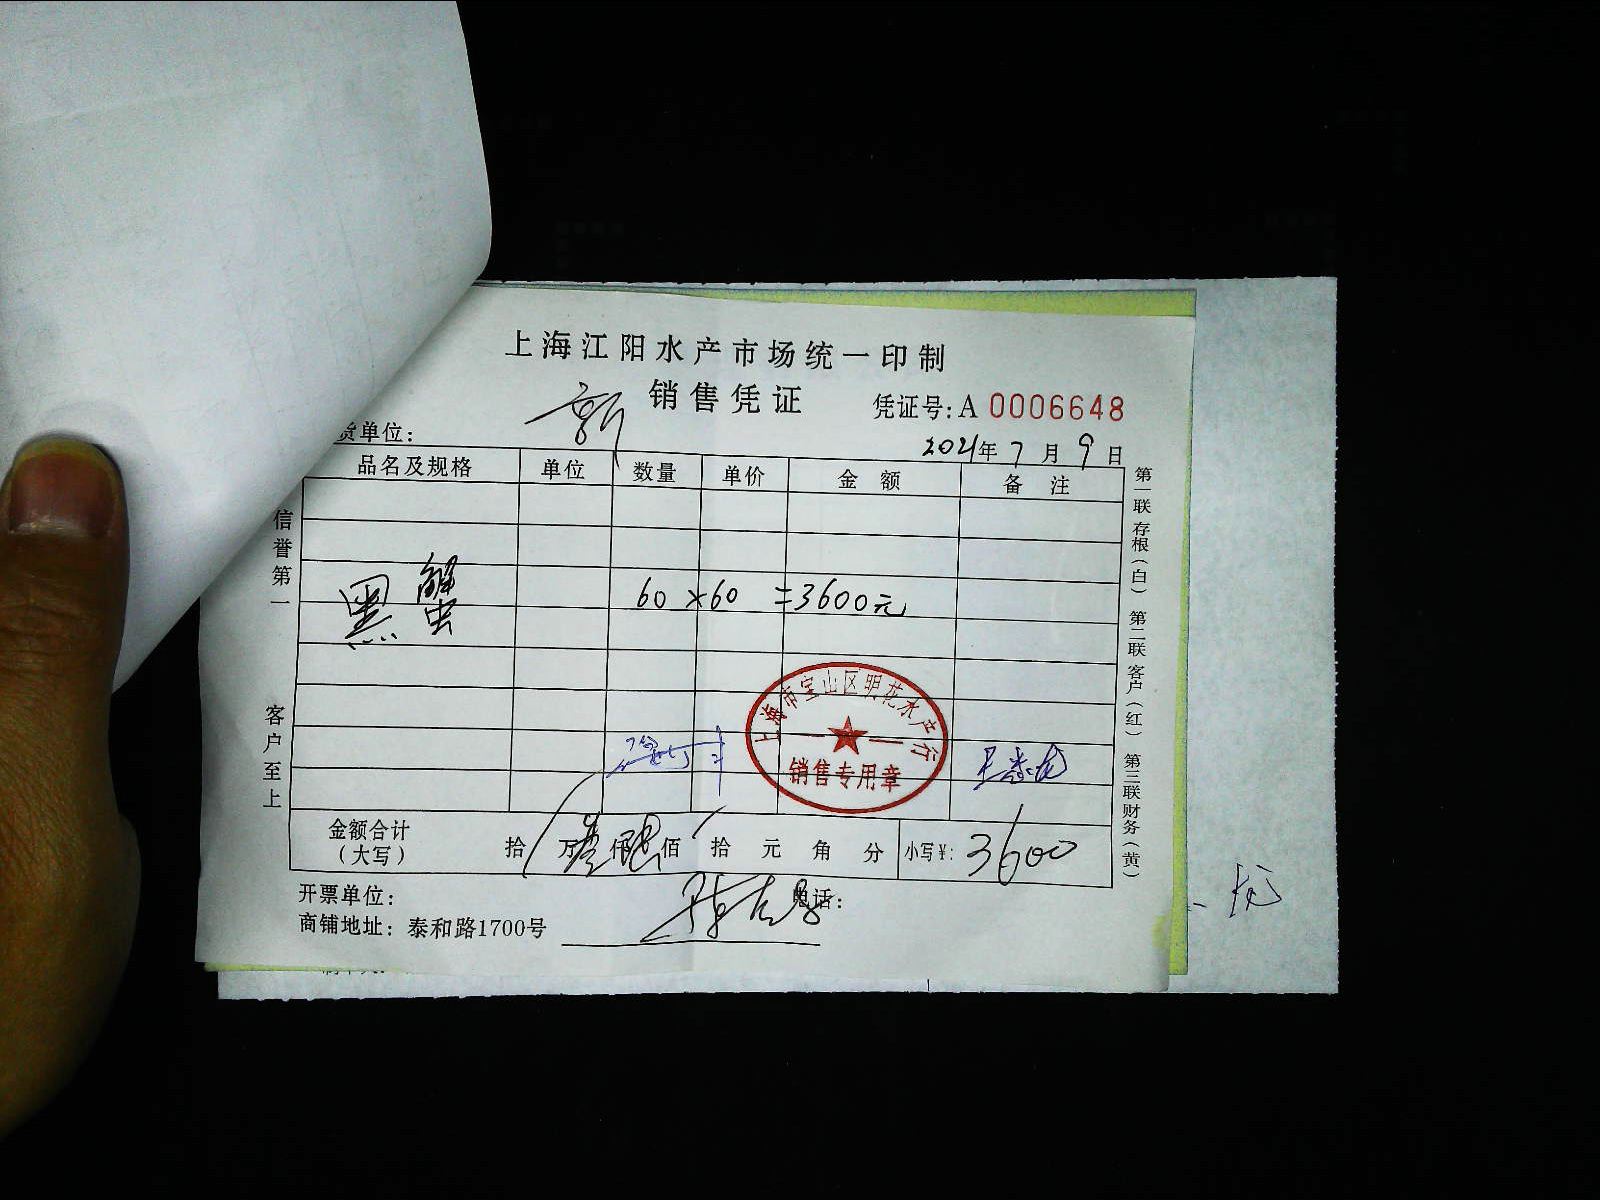 上海江阳水产市场统一印制
销售凭证
凭证号:A 0006648
货单位:
2021年7月9日
品名及规格 单位 数量 单价 金额 备注
黑蟹 60×60=3600元
上海市宝山区明花水产行
销售专用章
金额合计(大写) 拾 万叁仟陆佰 拾 元 角 分 小写¥: 3600
开票单位: 电话:
商铺地址: 泰和路1700号
信誉第一 客户至上
第一联存根(白) 第二联客户(红) 第三联财务(黄)